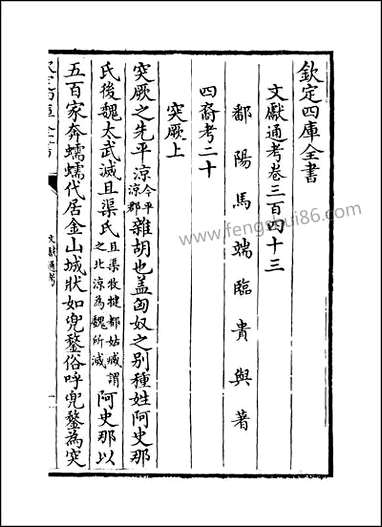 欽定四庫全書
文獻通考卷三百四十三
鄱陽馬端臨貴與著
四裔考二十
突厥上
突厥之先平涼今平涼郡雜胡也盖匈奴之别種姓阿史那
氏後魏太武滅且渠氏且渠牧犍都姑臧謂之北涼為魏所滅阿史那以
五百家奔蠕蠕代居金山城狀如兜鍪俗呼兜鍪為突
文獻通考
www.fengshui86.com